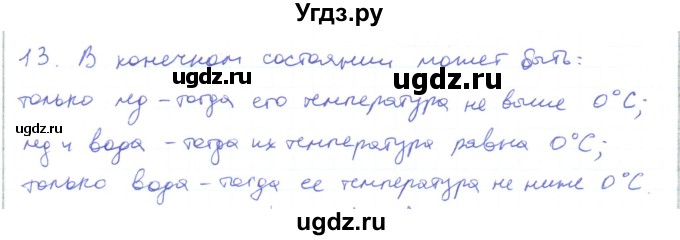 Угдз.ру
13. В конечном состоянии может быть:
ugdz.ru ugdz.ru
только лёд – тогда его температура не выше 0°С;
ugdz.ru ugdz.ru
лёд и вода – тогда их температура равна 0°С;
ugdz.ru ugdz.ru
только вода – тогда ее температура не ниже 0°С.
ugdz.ru